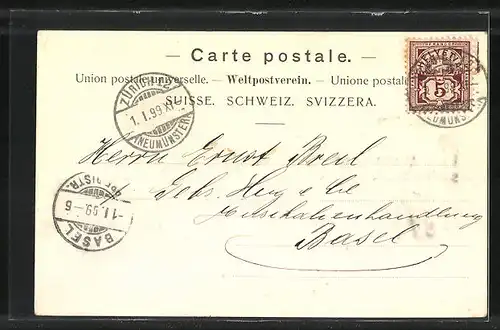 — Carte postale. —
Union postale universelle. — Weltpostverein. — Unione postale
SUISSE. SCHWEIZ. SVIZZERA.
ZÜRICH
1. I. 99. XI
(NEUMÜNSTER)
5
NEUMÜNS
Herrn Ernst Breil
Gebr. Hug & Co
Musikalienhandlung
Basel
BRF. DISTR.
-1. I. 99. -6
BASEL